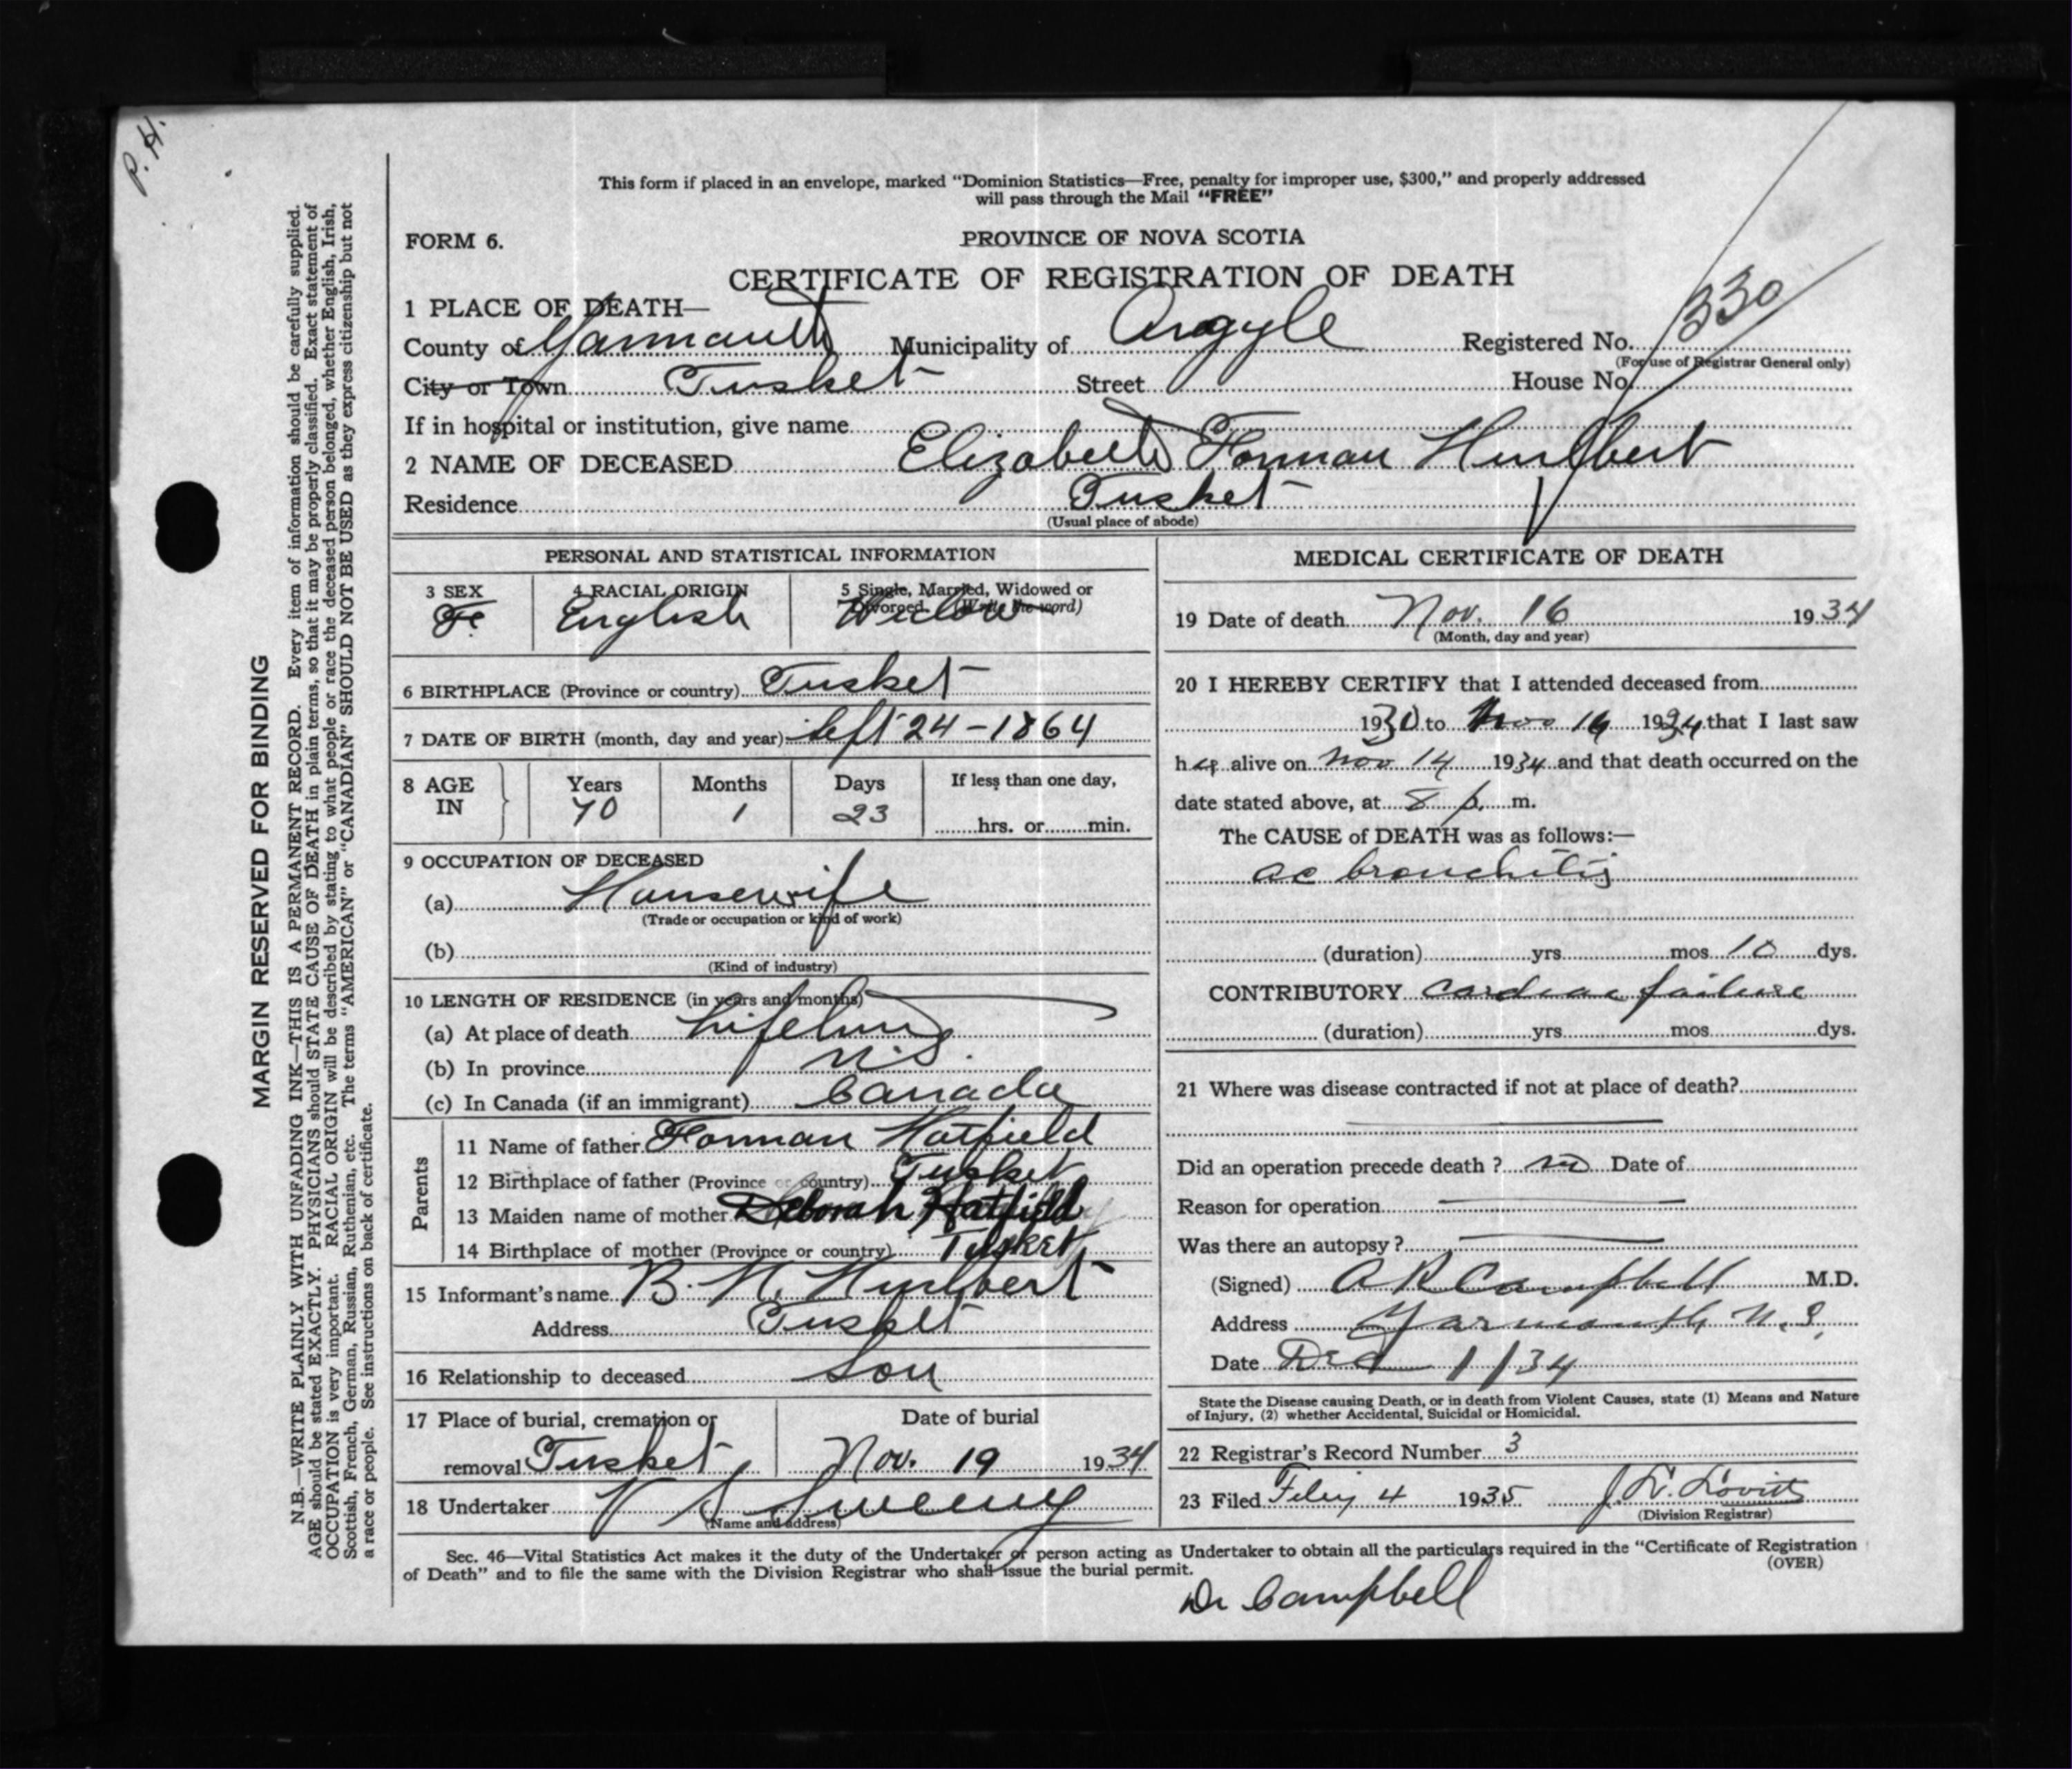 P. H.
This form if placed in an envelope, marked “Dominion Statistics—Free, penalty for improper use, $300,” and properly addressed
will pass through the Mail “FREE”
FORM 6.
PROVINCE OF NOVA SCOTIA
CERTIFICATE OF REGISTRATION OF DEATH
1 PLACE OF DEATH—
County of Yarmouth Municipality of Argyle Registered No. 330
(For use of Registrar General only)
City or Town Tusket Street House No.
If in hospital or institution, give name
2 NAME OF DECEASED Elizabeth Forman Hurlbert
Residence Tusket
(Usual place of abode)
PERSONAL AND STATISTICAL INFORMATION
3 SEX 4 RACIAL ORIGIN 5 Single, Married, Widowed or
Divorced. (Write the word)
Fe English Widow
6 BIRTHPLACE (Province or country) Tusket
7 DATE OF BIRTH (month, day and year) Sept 24 - 1864
8 AGE IN Years Months Days If less than one day,
70 1 23 hrs. or min.
9 OCCUPATION OF DECEASED
(a) Housewife
(Trade or occupation or kind of work)
(b)
(Kind of industry)
10 LENGTH OF RESIDENCE (in years and months)
(a) At place of death Lifetime
(b) In province N.S.
(c) In Canada (if an immigrant) Canada
Parents
11 Name of father Forman Hatfield
12 Birthplace of father (Province or country) Tusket
13 Maiden name of mother Deborah Hatfield
14 Birthplace of mother (Province or country) Tusket
15 Informant's name B. H. Hurlbert
Address Tusket
16 Relationship to deceased Son
17 Place of burial, cremation or Date of burial
removal Tusket Nov. 19 1934
18 Undertaker V S Sweeny
(Name and address)
MEDICAL CERTIFICATE OF DEATH
19 Date of death Nov. 16 1934
(Month, day and year)
20 I HEREBY CERTIFY that I attended deceased from
1930 to Nov 16 1934 that I last saw
her alive on Nov 14 1934 and that death occurred on the
date stated above, at 8 p. m.
The CAUSE of DEATH was as follows:—
ac bronchitis
(duration) yrs mos 10 dys.
CONTRIBUTORY cardiac failure
(duration) yrs mos dys.
21 Where was disease contracted if not at place of death?
Did an operation precede death ? no Date of
Reason for operation
Was there an autopsy ?
(Signed) A R Campbell M.D.
Address Yarmouth N.S.
Date Dec 1/34
State the Disease causing Death, or in death from Violent Causes, state (1) Means and Nature
of Injury, (2) whether Accidental, Suicidal or Homicidal.
22 Registrar's Record Number 3
23 Filed 4 1935 J. L. Lovitt
(Division Registrar)
Sec. 46—Vital Statistics Act makes it the duty of the Undertaker or person acting as Undertaker to obtain all the particulars required in the “Certificate of Registration
of Death” and to file the same with the Division Registrar who shall issue the burial permit.
(OVER)
Dr Campbell
MARGIN RESERVED FOR BINDING
N.B.—WRITE PLAINLY WITH UNFADING INK—THIS IS A PERMANENT RECORD. Every item of information should be carefully supplied.
AGE should be stated EXACTLY. PHYSICIANS should STATE CAUSE OF DEATH in plain terms, so that it may be properly classified. Exact statement of
OCCUPATION is very important. RACIAL ORIGIN will be described by stating to what people or race the deceased person belonged, whether English, Irish,
Scottish, French, German, Russian, Ruthenian, etc. The terms “AMERICAN” or “CANADIAN” SHOULD NOT BE USED as they express citizenship but not
a race or people. See instructions on back of certificate.